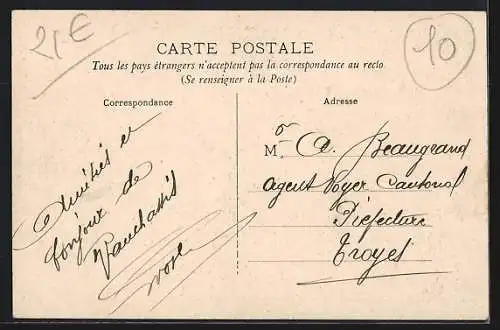 25€
10
CARTE POSTALE
Tous les pays étrangers n'acceptent pas la correspondance au recto
(Se renseigner à la Poste)
Correspondance
Adresse
Amitiés et
bonjour de
Vauchassis
Mr A. Beaugrand
agent Voyer Cantonal
Préfecture
Troyes